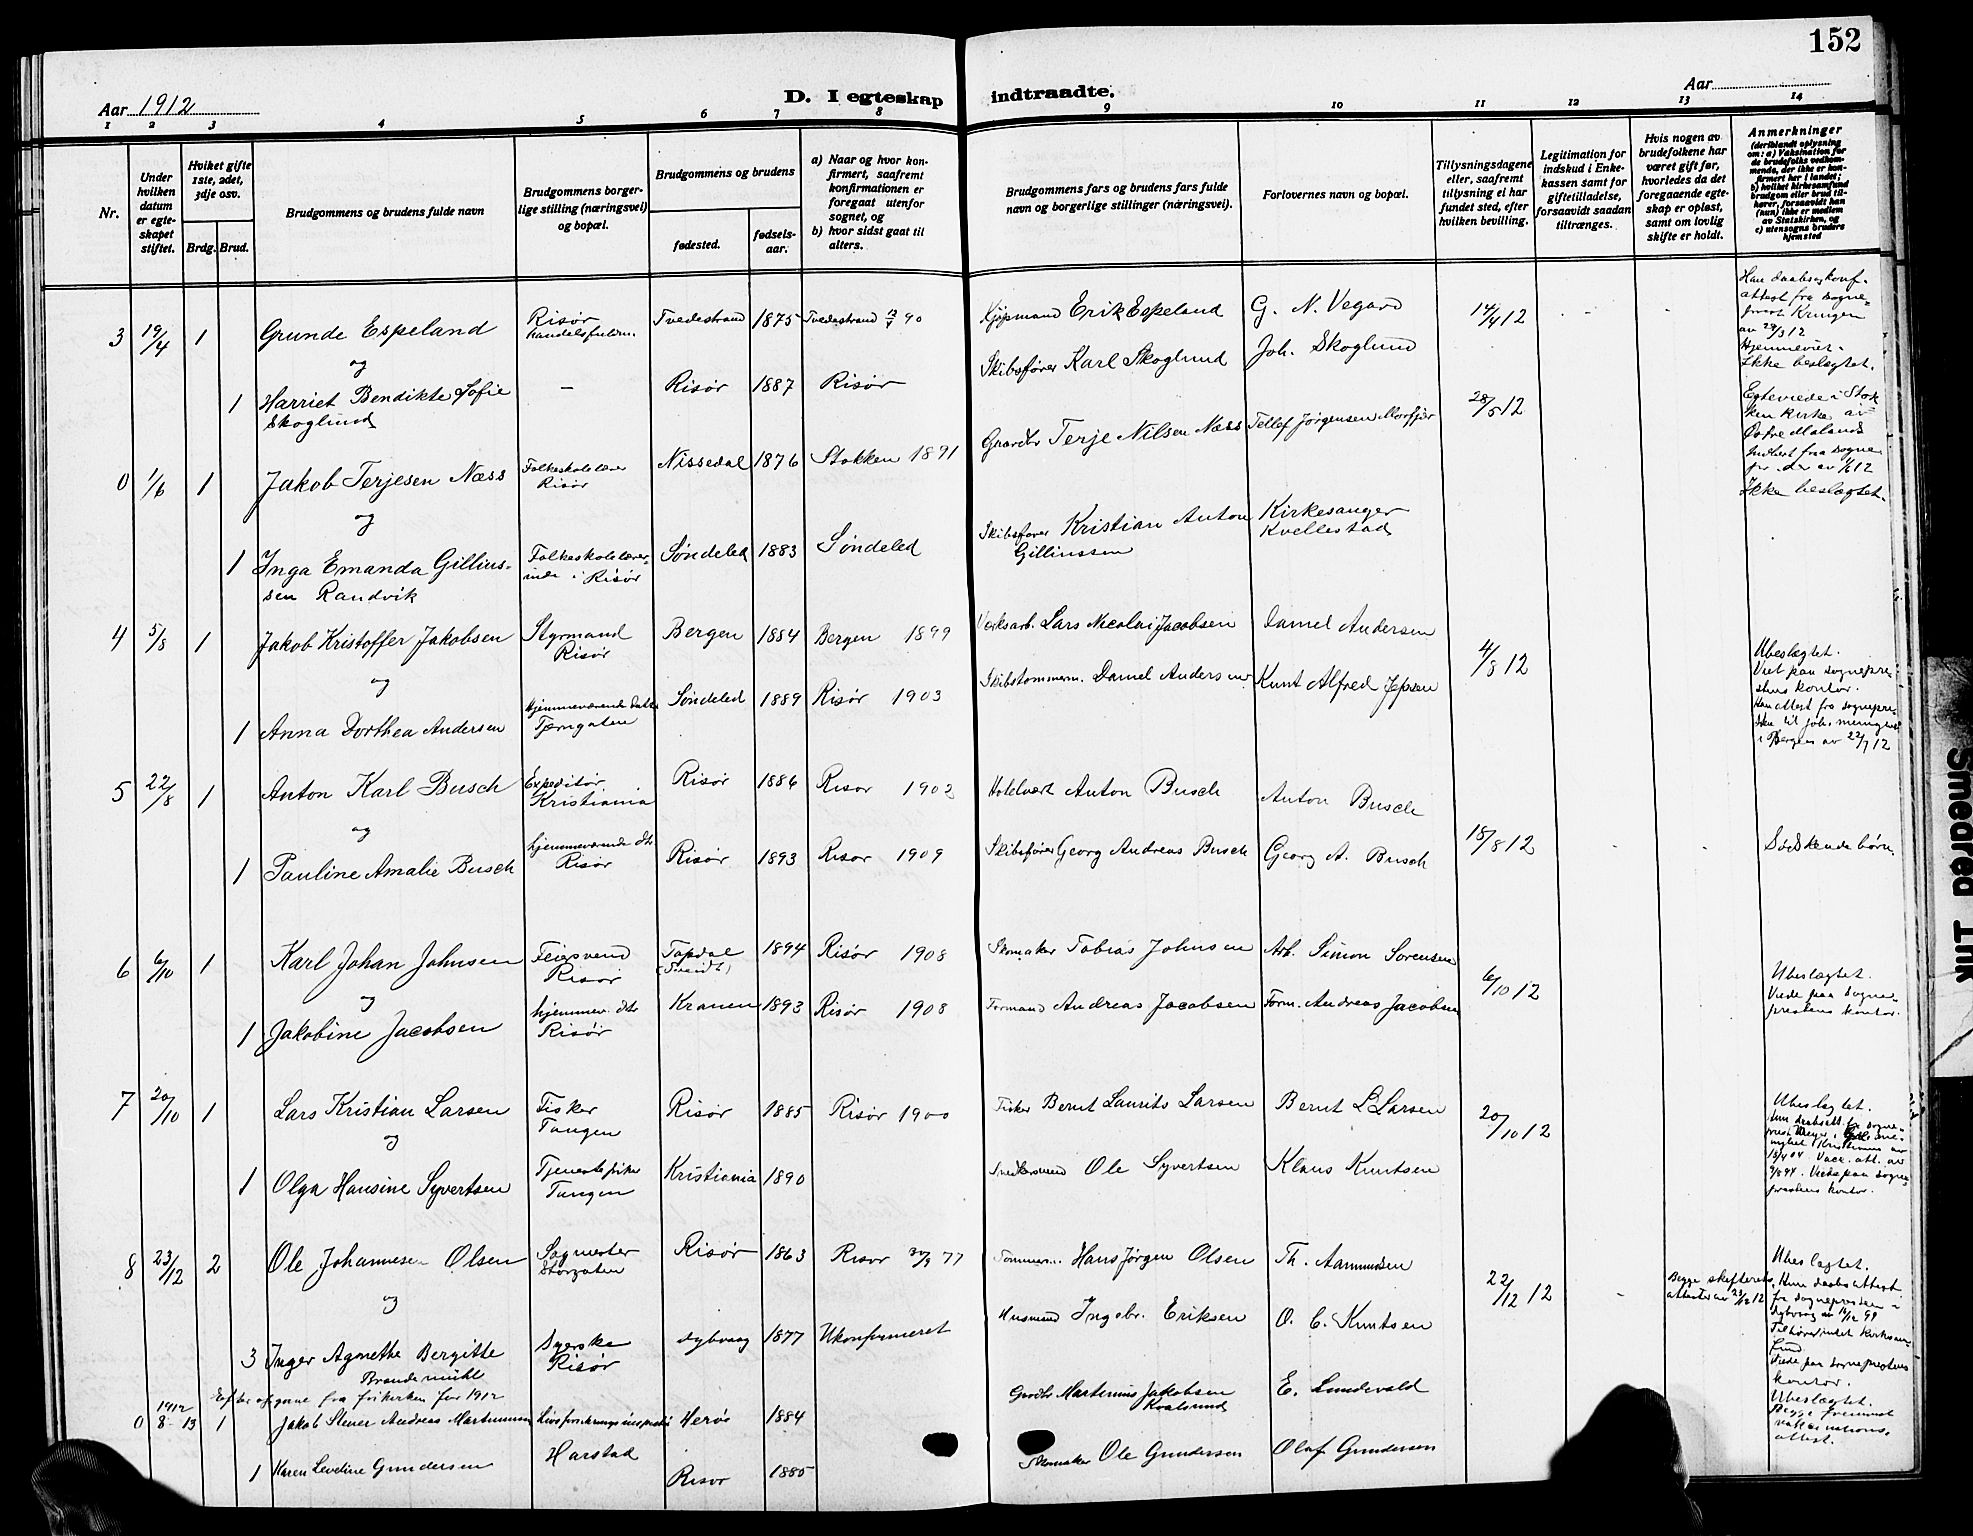 152
Aar 1912
D. I egteskap indtraadte.
Aar
1 2 3 4 5 6 7 8 9 10 11 12 13 14
Nr.
Under hvilken datum er egteskapet stiftet.
Hvilket gifte 1ste, 2det, 3dje osv.
Brdg. Brud.
Brudgommens og brudens fulde navn
Brudgommens borgerlige stilling (næringsvei) og bopæl.
Brudgommens og brudens
fødested.
fødselsaar.
a) Naar og hvor konfirmert, saafremt konfirmationen er foregaat utenfor sognet, og
b) hvor sidst gaat til alters.
Brudgommens fars og brudens fars fulde navn og borgerlige stillinger (næringsvei).
Forlovernes navn og bopæl.
Tillysningsdagene eller, saafremt tillysning ei har fundet sted, efter hvilken bevilling.
Legitimation for indskud i Enkekassen samt for giftetilladelse, forsaavidt saadan tiltrænges.
Hvis nogen av brudefolkene har været gift før, hvorledes da det foregaaende egteskap er opløst, samt om lovlig skifte er holdt.
Anmerkninger
(deriblandt oplysning om: a) Vaksination for de brudefolks vedkommende, der ikke er konfirmert her i landet; b) hvilket kirkesamfund brudgom eller brud tilhører, forsaavidt han (hun) ikke er medlem av Statskirken, og c) utensogns bruders hjemsted
3 19/4 1 Grunde Espeland Risør Handelsfuldm. Tvedestrand 1875 Tvedestrand 90 Kjøpmand Erik Espeland G. N. Vegard 14/4 12
og
1 Harriet Bendikte Sofie Skoglund – Risør 1887 Risør Skibsfører Karl Skoglund Joh. Skoglund
Han daabs og konf. attest fra sogneprest Kringen av 28/3 12
Hjemmeviet.
Ikke beslegtet.
0 1/6 1 Jakob Terjesen Næss Folkeskolelærer Risør Nissedal 1876 Stokken 1891 Gaardbr Terje Nilsen Næss Tellef Jörgensen Morfjær 28/5 12
og
1 Inga Emanda Gilliussen Randvik Folkeskolelærerinde i Risör Søndeled 1883 Søndeled Skibsfører Kristian Anton Gilliussen Kirkesanger Kvellestad
Egteviede i Stokken Kirke
Østre Molands
Ikke beslegtet.
4 5/8 1 Jakob Kristoffer Jakobsen Styrmand Risør Bergen 1884 Bergen 1899 Verksarb. Lars Nicolai Jacobsen Daniel Andersen 4/8 12
og
1 Anna Dorthea Andersen Hjemmeværende datter Tjerngaten Søndeled 1889 Risør 1903 Skibstømmerm. Daniel Andersen Knut Alfred Jepsen
Ubeslegtet.
Viet paa sogneprestens kontor.
Han attest fra sogneprsten til Joh. menighed i Bergen av 22/7 12
5 22/8 1 Anton Karl Busch Expeditør Kristiania Risør 1886 Risør 1902 Hotelvært Anton Busch Anton Busch
og
1 Pauline Amalie Busch hjemmeværende dtr Risør Risør 1893 Risør 1909 Skibsfører Georg Andreas Busch Georg A. Busch 18/8 12
Sødskendebørn.
6 6/10 1 Karl Johan Johnsen Feiersvend Risør Topdal (Tveidt) 1894 Risør 1908 Skomaker Tobias Johnsen Arb. Simon Sørensen 6/10 12
og
1 Jakobine Jacobsen hjemmev. dtr Risør 1893 Risør 1908 Formand Andreas Jacobsen Form. Andreas Jacobsen
Ubeslegtet.
Viede paa sogneprestens kontor.
7 20/10 1 Lars Kristian Larsen Fisker Tangen Risør 1885 Risør 1900 Fisker Bernt Laurits Larsen Bernt L Larsen 20/10 12
og
1 Olga Hansine Syvertsen Tjenestepike Tangen Kristiania 1890 Ole Syvertsen Klaus Knutsen
Ubeslegtet.
Viede paa sogneprestens kontor.
8 23/12 2 Ole Johannesen Olsen Sagmester Storgaten Risør 1863 Risør 77 Tømmerm. Hans Jørgen Olsen Th. Aamundsen 22/12 12
og
3 Inger Agnethe Bergitte Brandemühl Syerske Risør Dybvaag 1877 Ukonfirmeret Husmand Ingebr. Eriksen O. C. Knutsen
Begge skifteretsattester av 23/12 12
Ubeslegtet.
Hun daabsattest fra sognepresten i Dybvaag
Viede paa sogneprestens kontor.
Efter opgave fra frikirken for 1912
0 1912 8-13 1 Jakob Stener Andreas Martinussen Livsforsikringsinspektør Herøs 1884 Gardbr Martinius Jakobsen Kvalsund E. Lundevold
1 Karen Leveline Gundersen Harstad Risør 1885 Skomaker Ole Gundersen Olaf Gundersen
Ubeslegtet.
Begge fremvist vaksinationsattest.
Smedred Trik